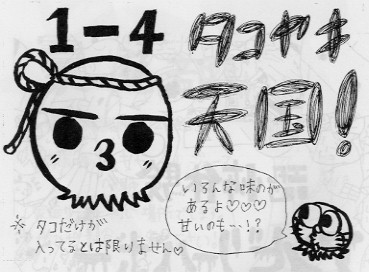 1-4
タコヤキ
天国!
いろんな味のが
あるよ♡♡♡
甘いのも…!?
※ タコだけが
入ってるとは限りません♡